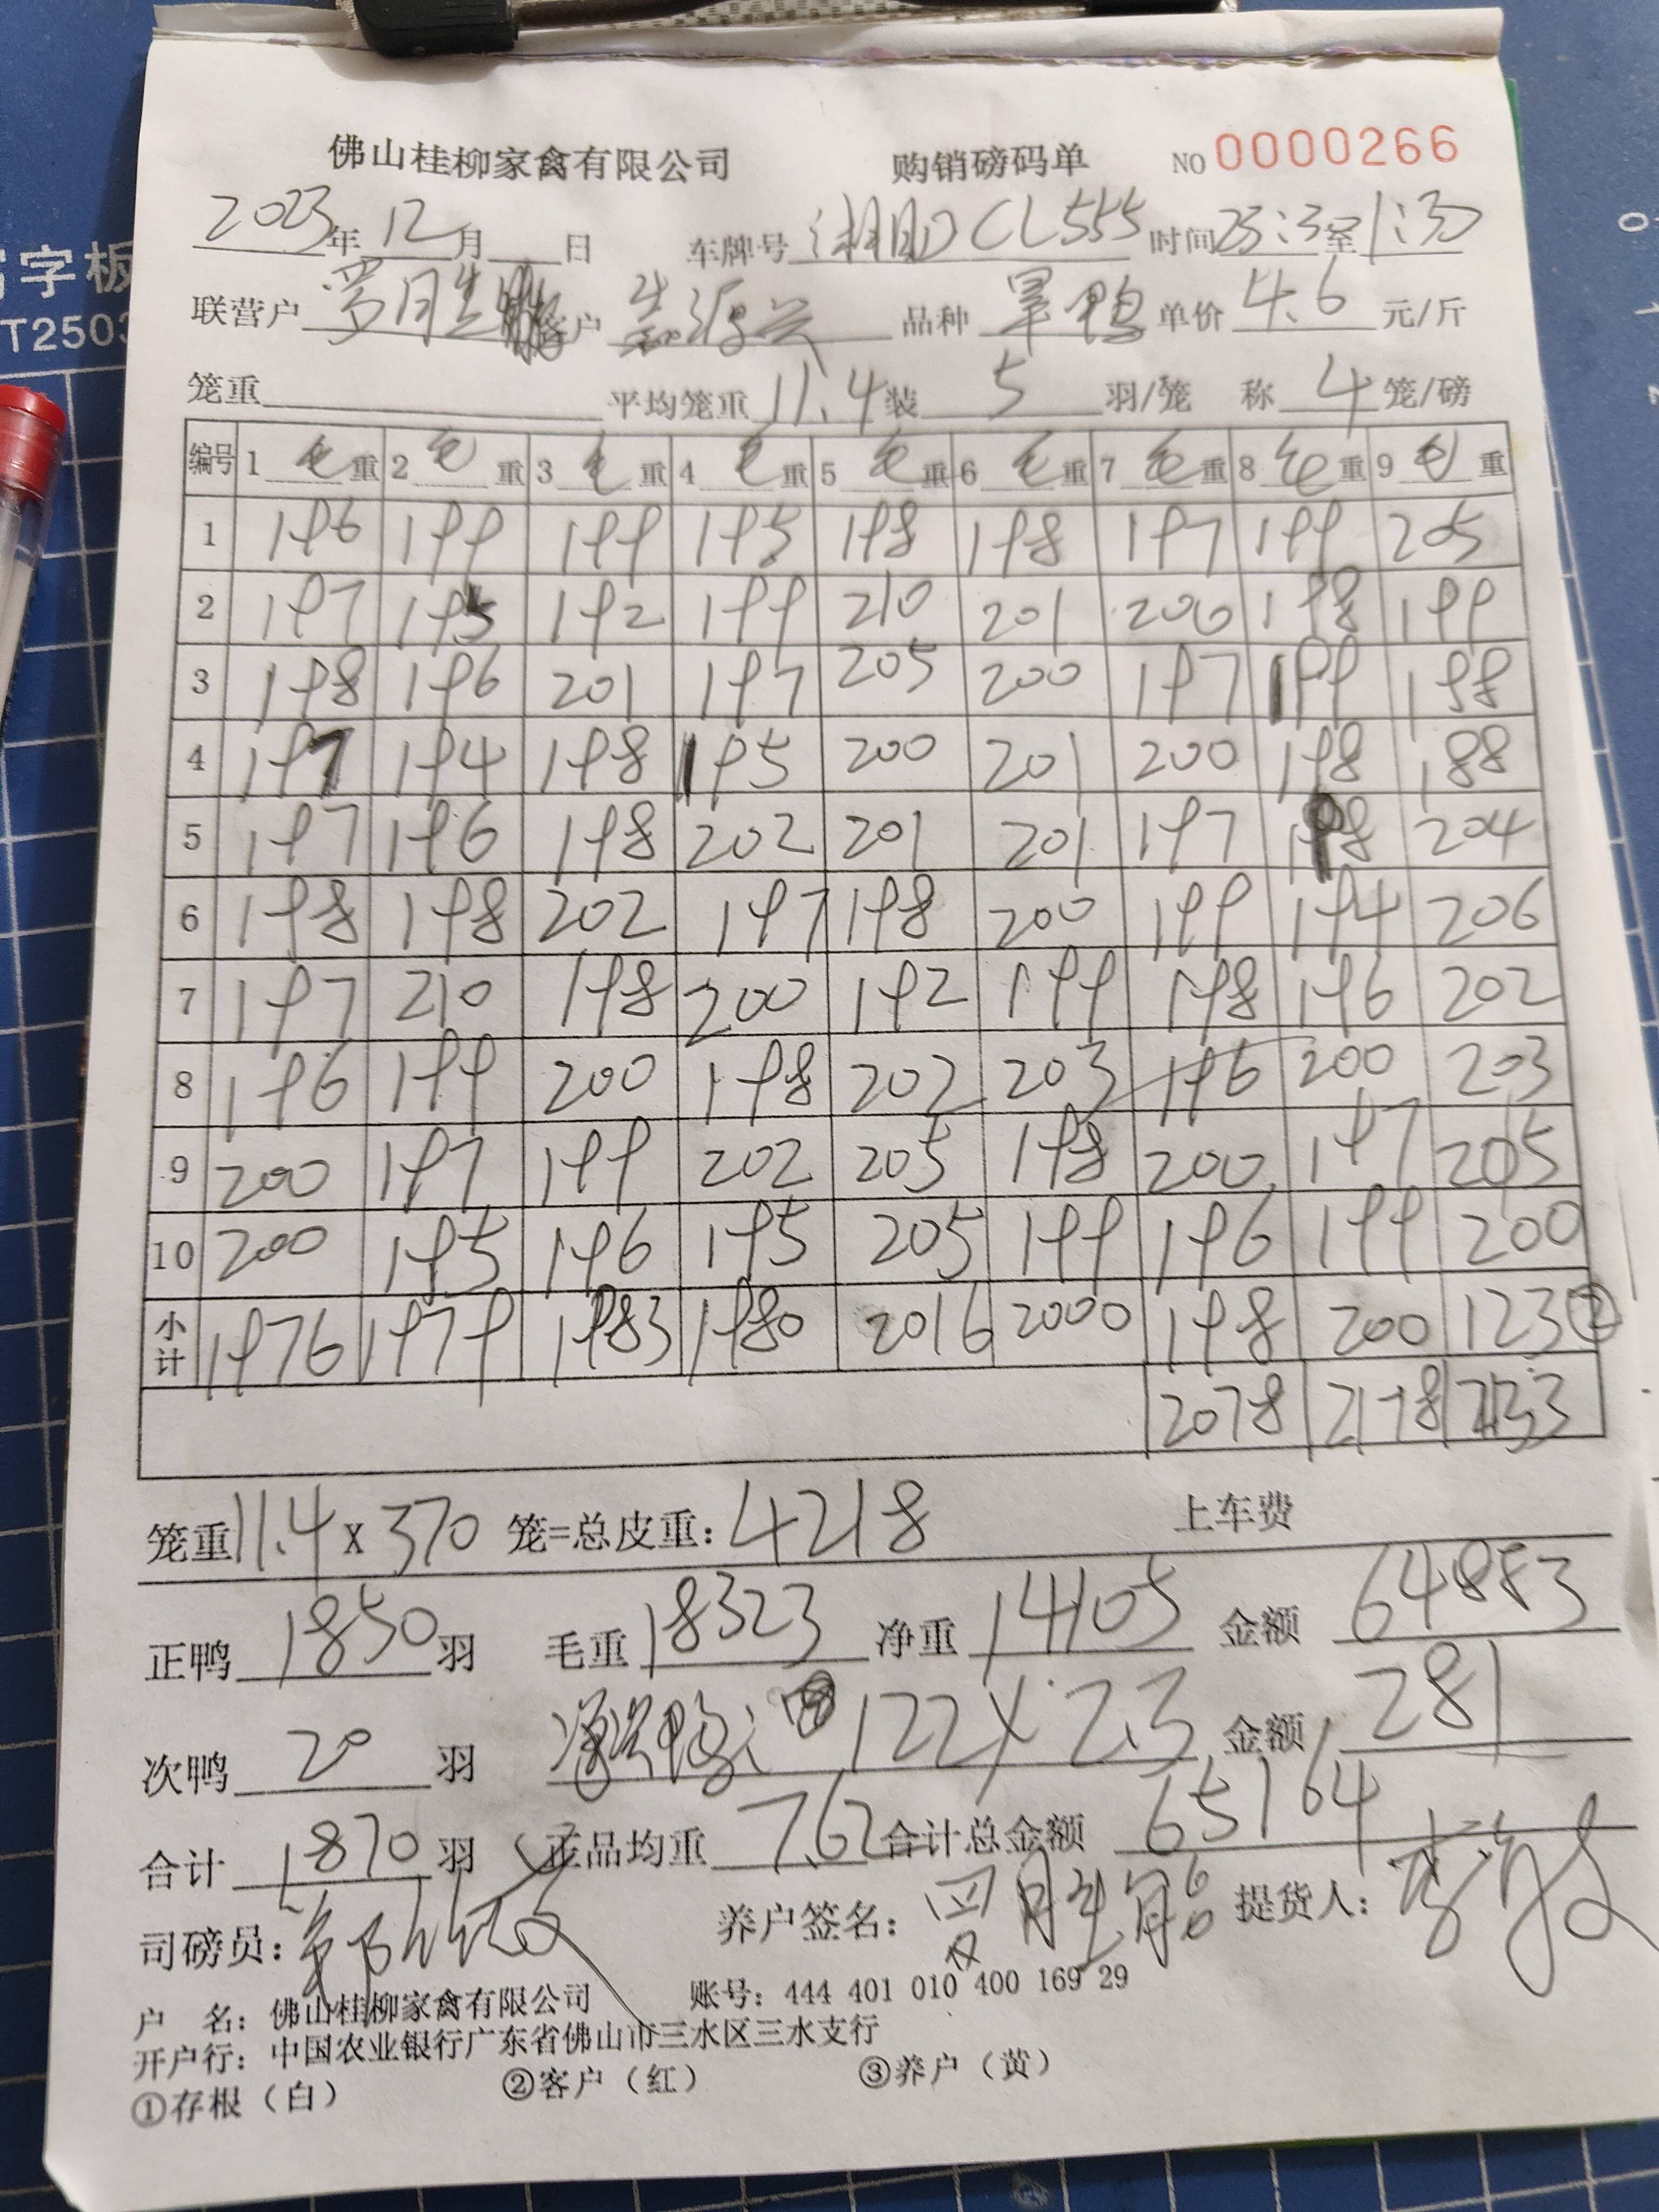 佛山桂柳家禽有限公司 购销磅码单 NO 0000266
2023年 12月 日 车牌号 湘DCL555 时间 23:3 至 1:30
联营户 户 源兴 品种 鸭 单价 4.6 元/斤
笼重 平均笼重 11.4 装 5 羽/笼 称 4 笼/磅
编号 1 毛重 2 毛重 3 毛重 4 毛重 5 毛重 6 毛重 7 毛重 8 毛重 9 毛重
1 196 199 199 195 198 198 197 199 205
2 197 195 192 199 210 201 200 198 199
3 198 196 201 197 205 200 197 199 198
4 197 194 198 195 200 201 200 198 188
5 197 196 198 202 201 201 197 198 204
6 198 198 202 197 198 200 199 194 206
7 197 210 198 200 192 199 198 196 202
8 196 199 200 198 202 203 196 200 203
9 200 197 199 202 205 198 200 197 205
10 200 195 196 195 205 199 196 199 200
小计 1976 1979 1983 1980 2016 2000 198 200 123②
2078 2178 2133
笼重 11.4 X 370 笼=总皮重: 4218 上车费
正鸭 1850 羽 毛重 18323 净重 14105 金额 64883
次鸭 20 羽 鸭: 122 X 2.3 金额 281
合计 1870 羽 正品均重 7.62 合计总金额 65164
司磅员: 养户签名: 提货人:
户 名: 佛山桂柳家禽有限公司 账号: 444 401 010 400 169 29
开户行: 中国农业银行广东省佛山市三水区三水支行
①存根（白） ②客户（红） ③养户（黄）
写字板
T2503